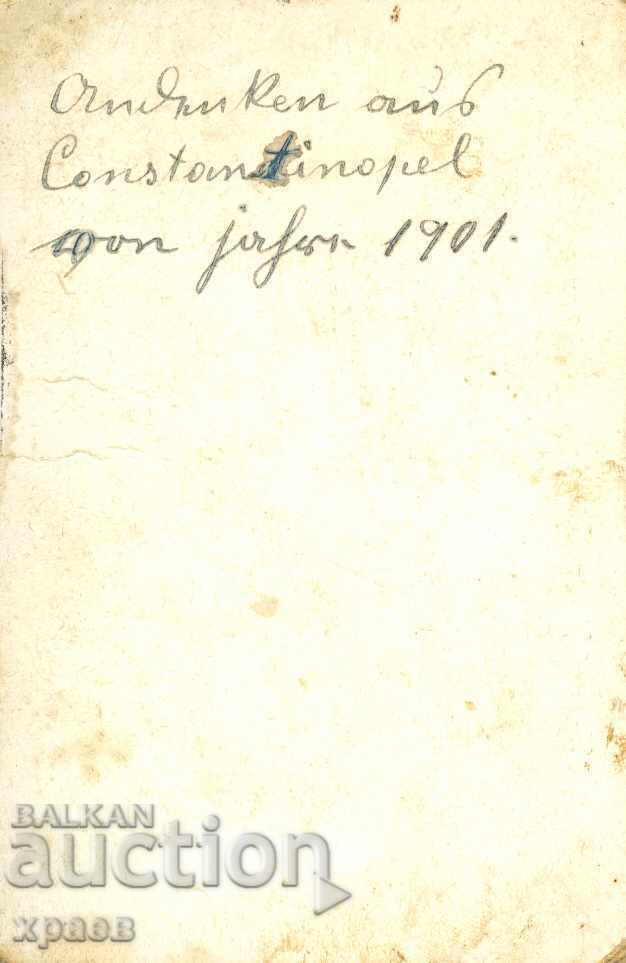 Andenken aus
Constantinopel
von jahre 1901.
BALKAN
auction
храев